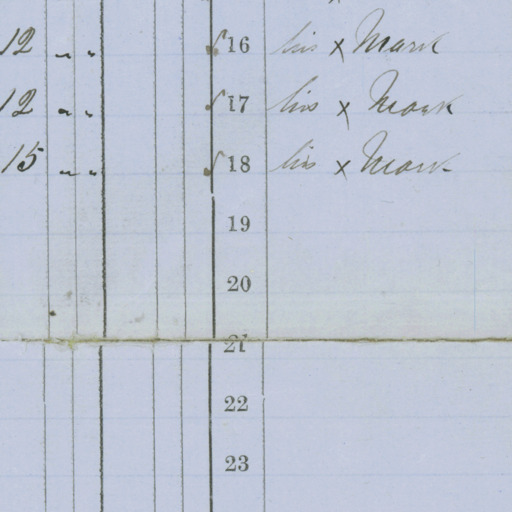 12 " " 16 his x Mark
12 " " 17 his x Mark
15 " " 18 his x Mark
19
20
21
22
23